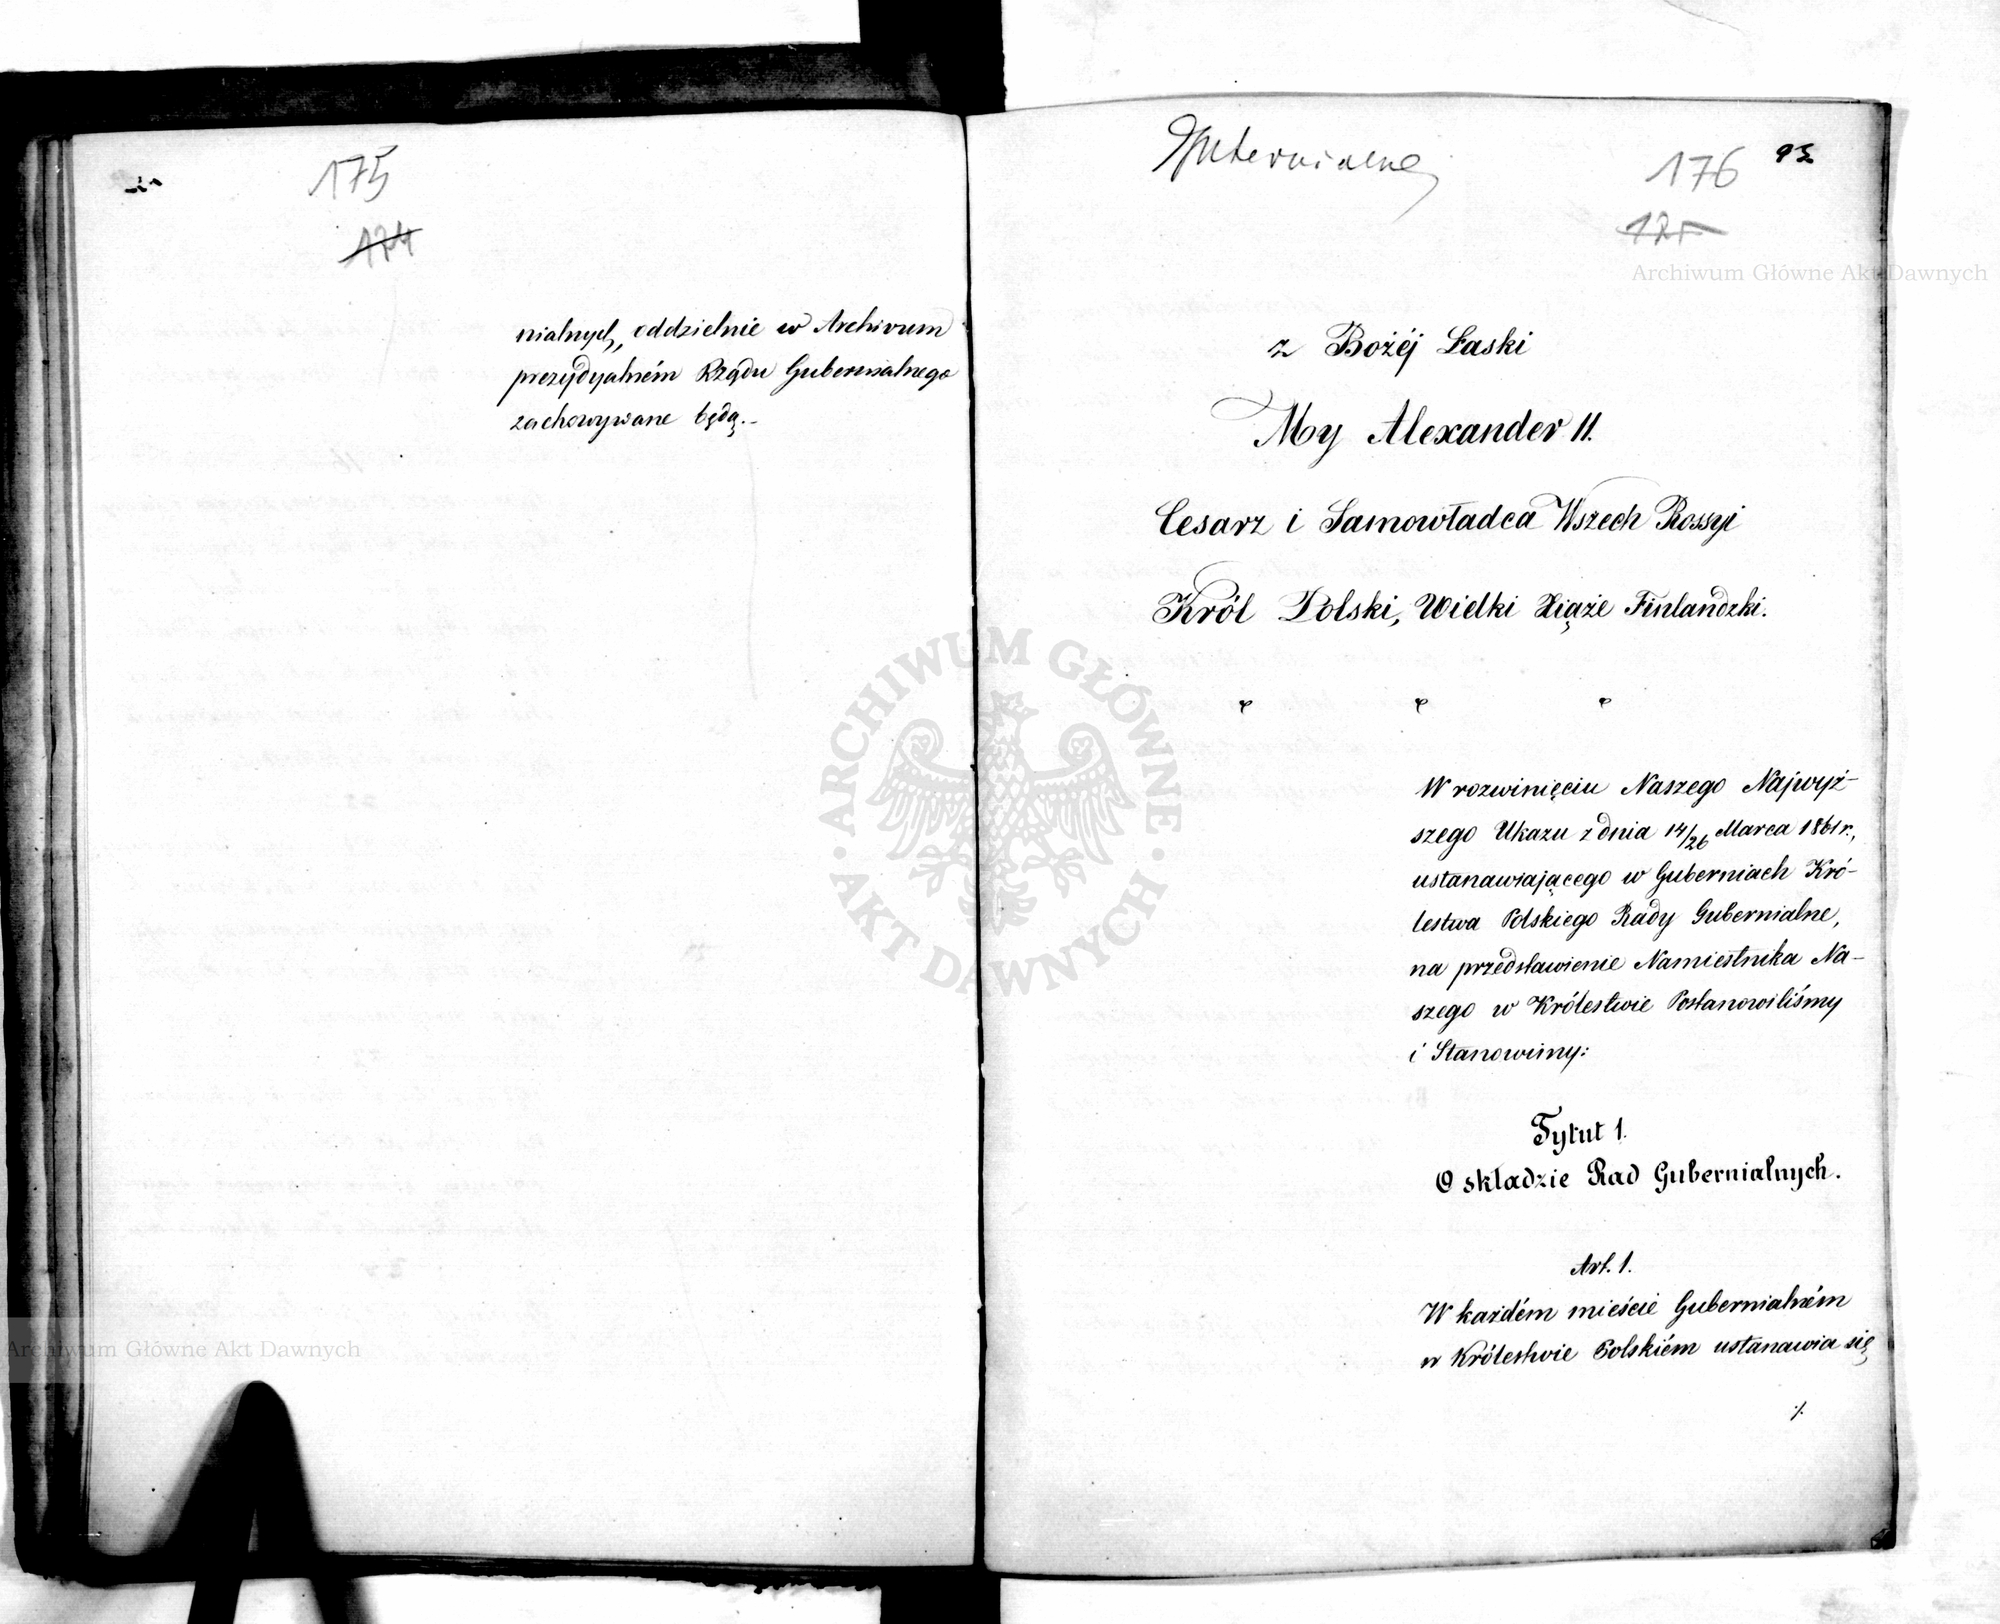 175
174
nialnych, oddzielnie w Archivum
prezydyalném Rządu Gubernialnego
zachowywane będą.-
Gubernialne
176
93
175
Archiwum Główne Akt Dawnych
z Bożéj Łaski
My Alexander II.
Cesarz i Samowładca Wszech Rossyi
Król Polski, Wielki Xiąże Finlandzki.
W rozwinięciu Naszego Najwyż-
szego Ukazu z dnia 14/26 Marca 1861 r.,
ustanawiającego w Guberniach Kró-
lestwa Polskiego Rady Gubernialne,
na przedstawienie Namiestnika Na-
szego w Królestwie Postanowiliśmy
i Stanowimy:
Tytuł 1.
O składzie Rad Gubernialnych.
Art. 1.
W każdém mieście Gubernialném
w Królestwie Polskiém ustanawia się
./.
ARCHIWUM GŁÓWNE
AKT DAWNYCH
Archiwum Główne Akt Dawnych